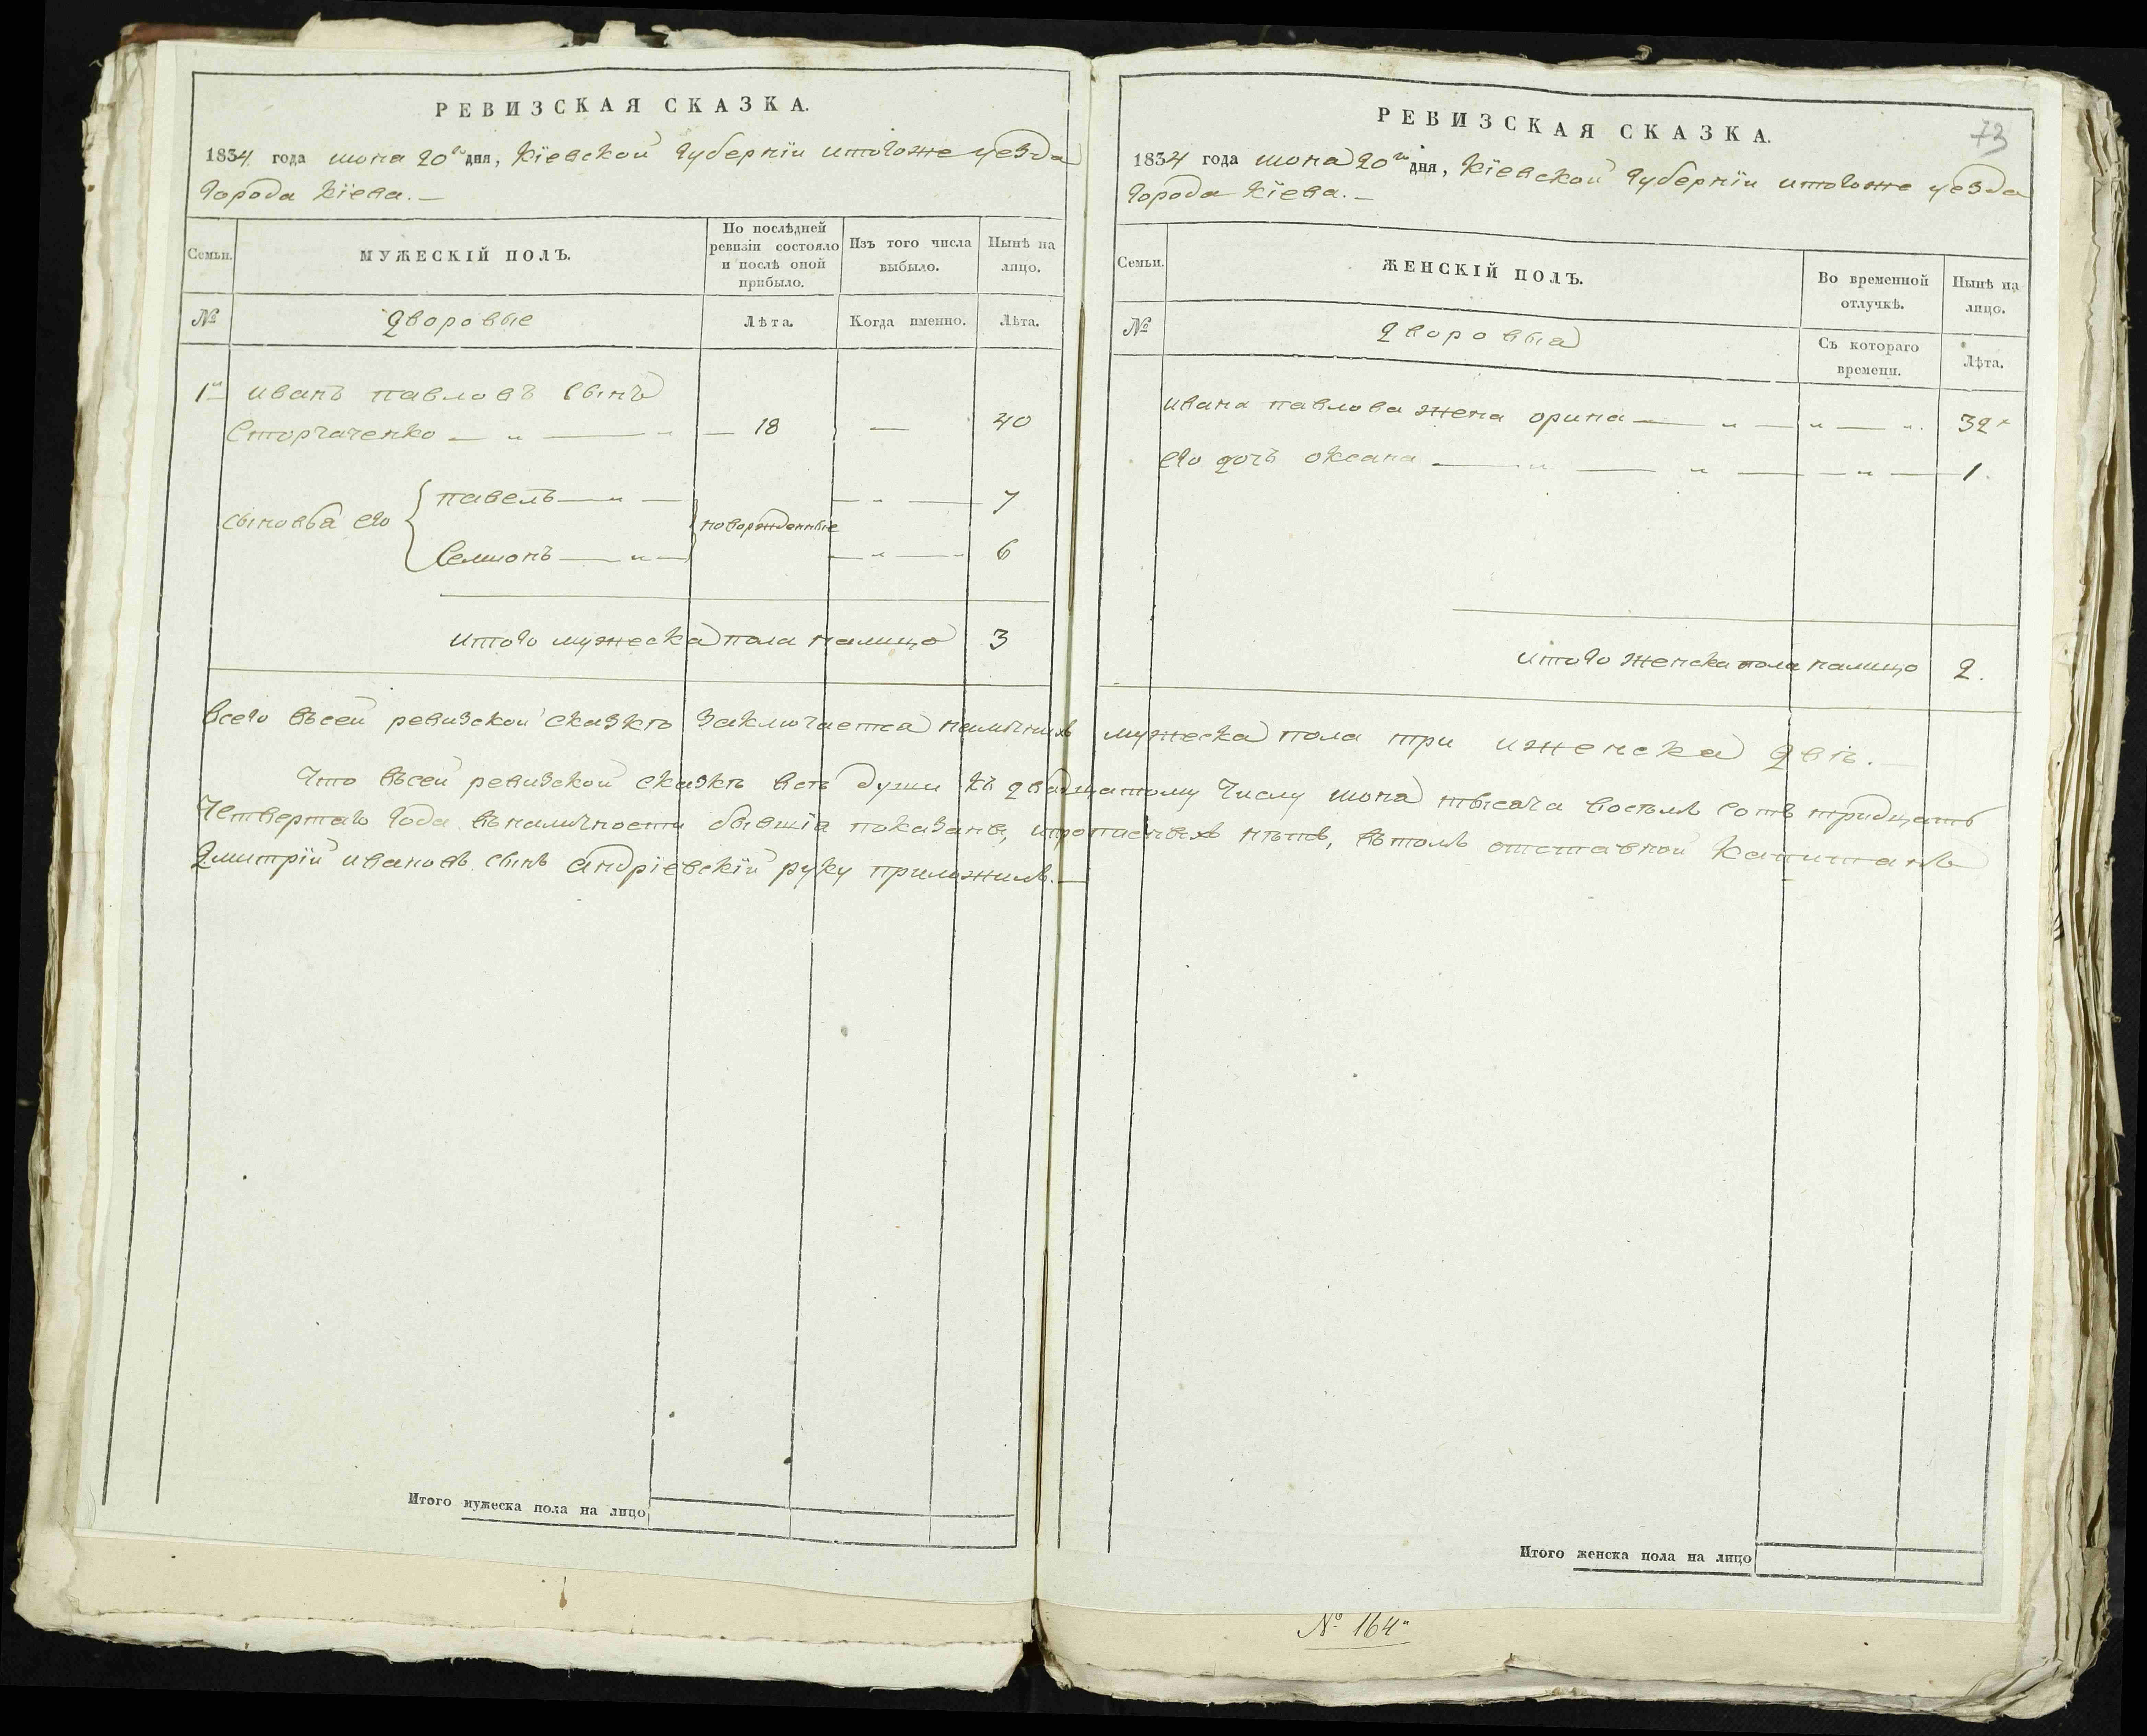 РЕВИЗСКАЯ СКАЗКА.
1834 года июня 20го дня, Кіевской губерніи итогоже уезда
города Кіева.—
Семьи.
МУЖЕСКІЙ ПОЛЪ.
По послѣдней ревизіи состояло и послѣ оной прибыло.
Изъ того числа выбыло.
Нынѣ на лицо.
№
дворовые
Лѣта.
Когда именно.
Лѣта.
1й иванъ павловъ сынъ
Сторчаченко — „ — „ — 18 — 40
сыновья его
павелъ — „ — новорожденные — „ — 7
Семионъ — „ — — „ — „ 6
итого мужеска пола налицо 3
РЕВИЗСКАЯ СКАЗКА.
73
1834 года июня 20го дня, Кіевской губерніи итогоже уезда
города Кіева.—
Семьи.
ЖЕНСКІЙ ПОЛЪ.
Во временной отлучкѣ.
Нынѣ на лицо.
№
дворовыя
Съ котораго времени.
Лѣта.
ивана павлова жена орина — „ — „ — „ 32
его дочь оксана — „ — „ — „ — 1.
итого женска пола налицо 2.
всего въсей ревизской сказкѣ заключается наличныхъ мужеска пола три иженска двѣ.—
Что въсей ревизской сказкѣ всѣ души къ двадцатому числу июня тысяча восемъ сотъ тридцать
четвертаго года въналичности бывшія показаны, ипрописныхъ нѣтъ, вътомъ отставной капитанъ
Дмитрій ивановъ сынъ андріевскій руку приложилъ.—
Итого мужеска пола на лицо
Итого женска пола на лицо
№ 164